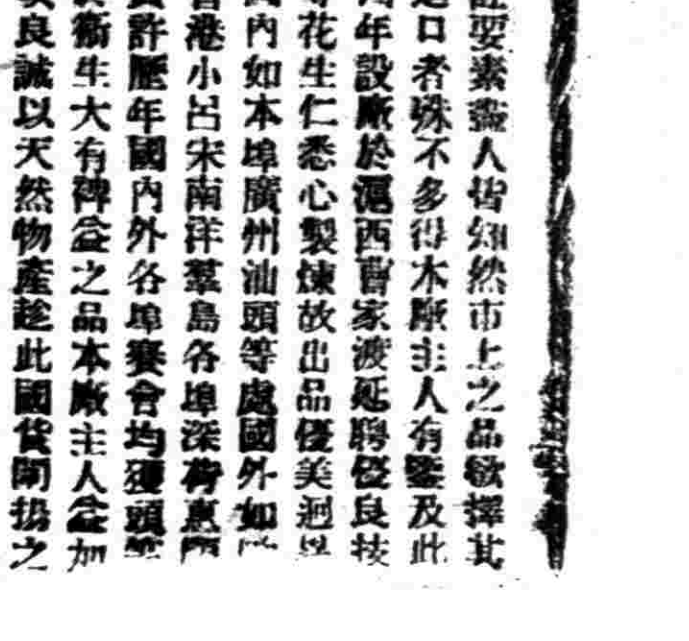 要素盡人皆知然市上之品欲擇其
口者殊不多得本廠主人有鑒及此
年設廠於滬西曹家渡延聘優良技
花生仁悉心製煉故出品優美迥
內如本埠廣州汕頭等處國外如
港小呂宋南洋羣島各埠深荷惠
許歷年國內外各埠賽會均獲頭等
衞生大有裨益之品本廠主人益加
良誠以天然物產趁此國貨開揚之